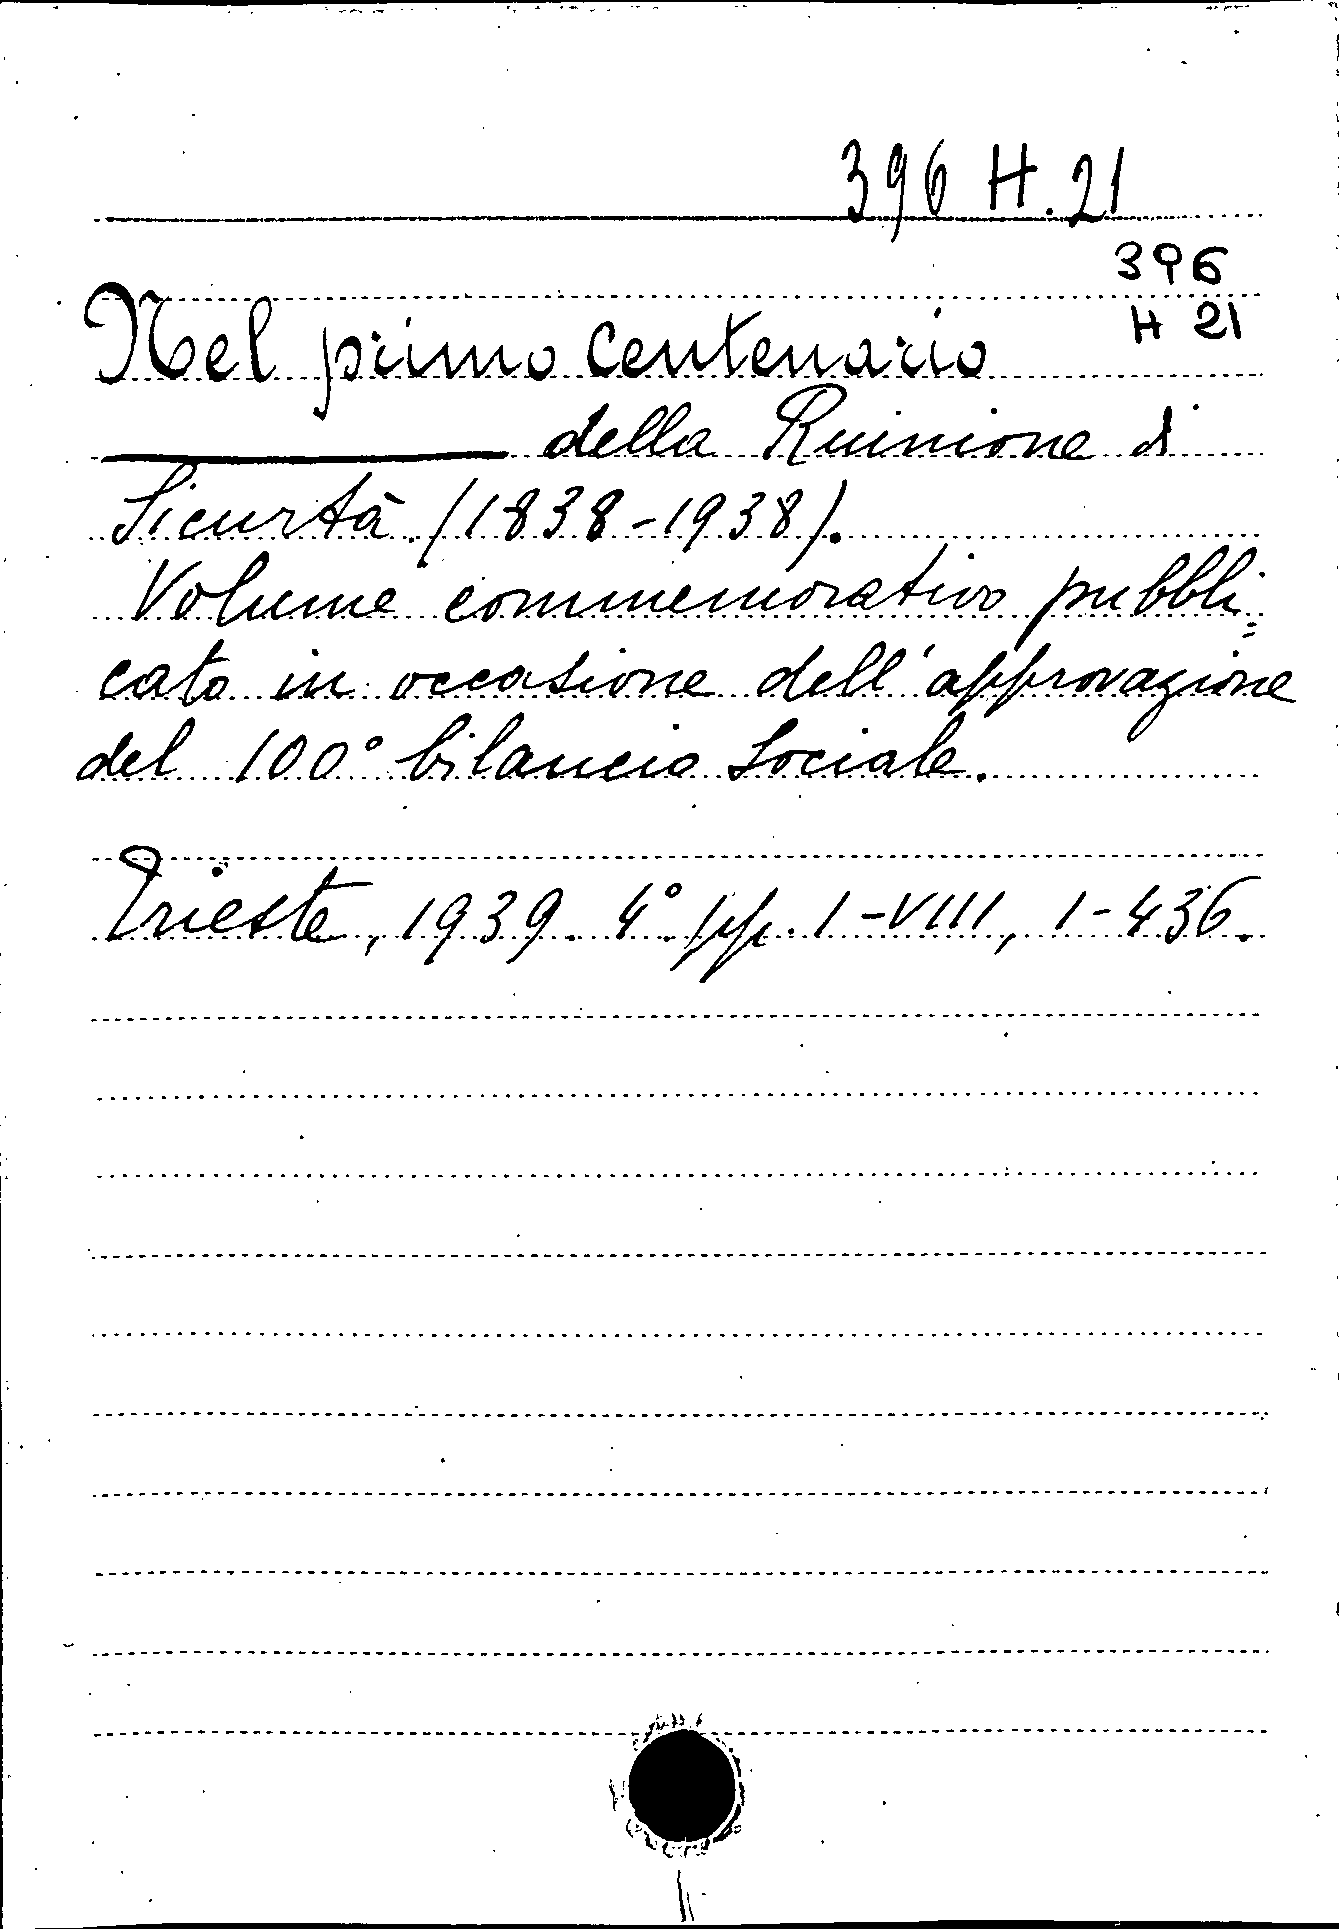 396 H. 21
396
H 21
Nel primo centenario
della Ruinione di
Sicurtà (1838-1938).
Volume commemorativo pubbli=
cato in occasione dell'approvazione
del 100° bilancio sociale.
Trieste, 1939. 4° pp. I-VIII, 1-436.